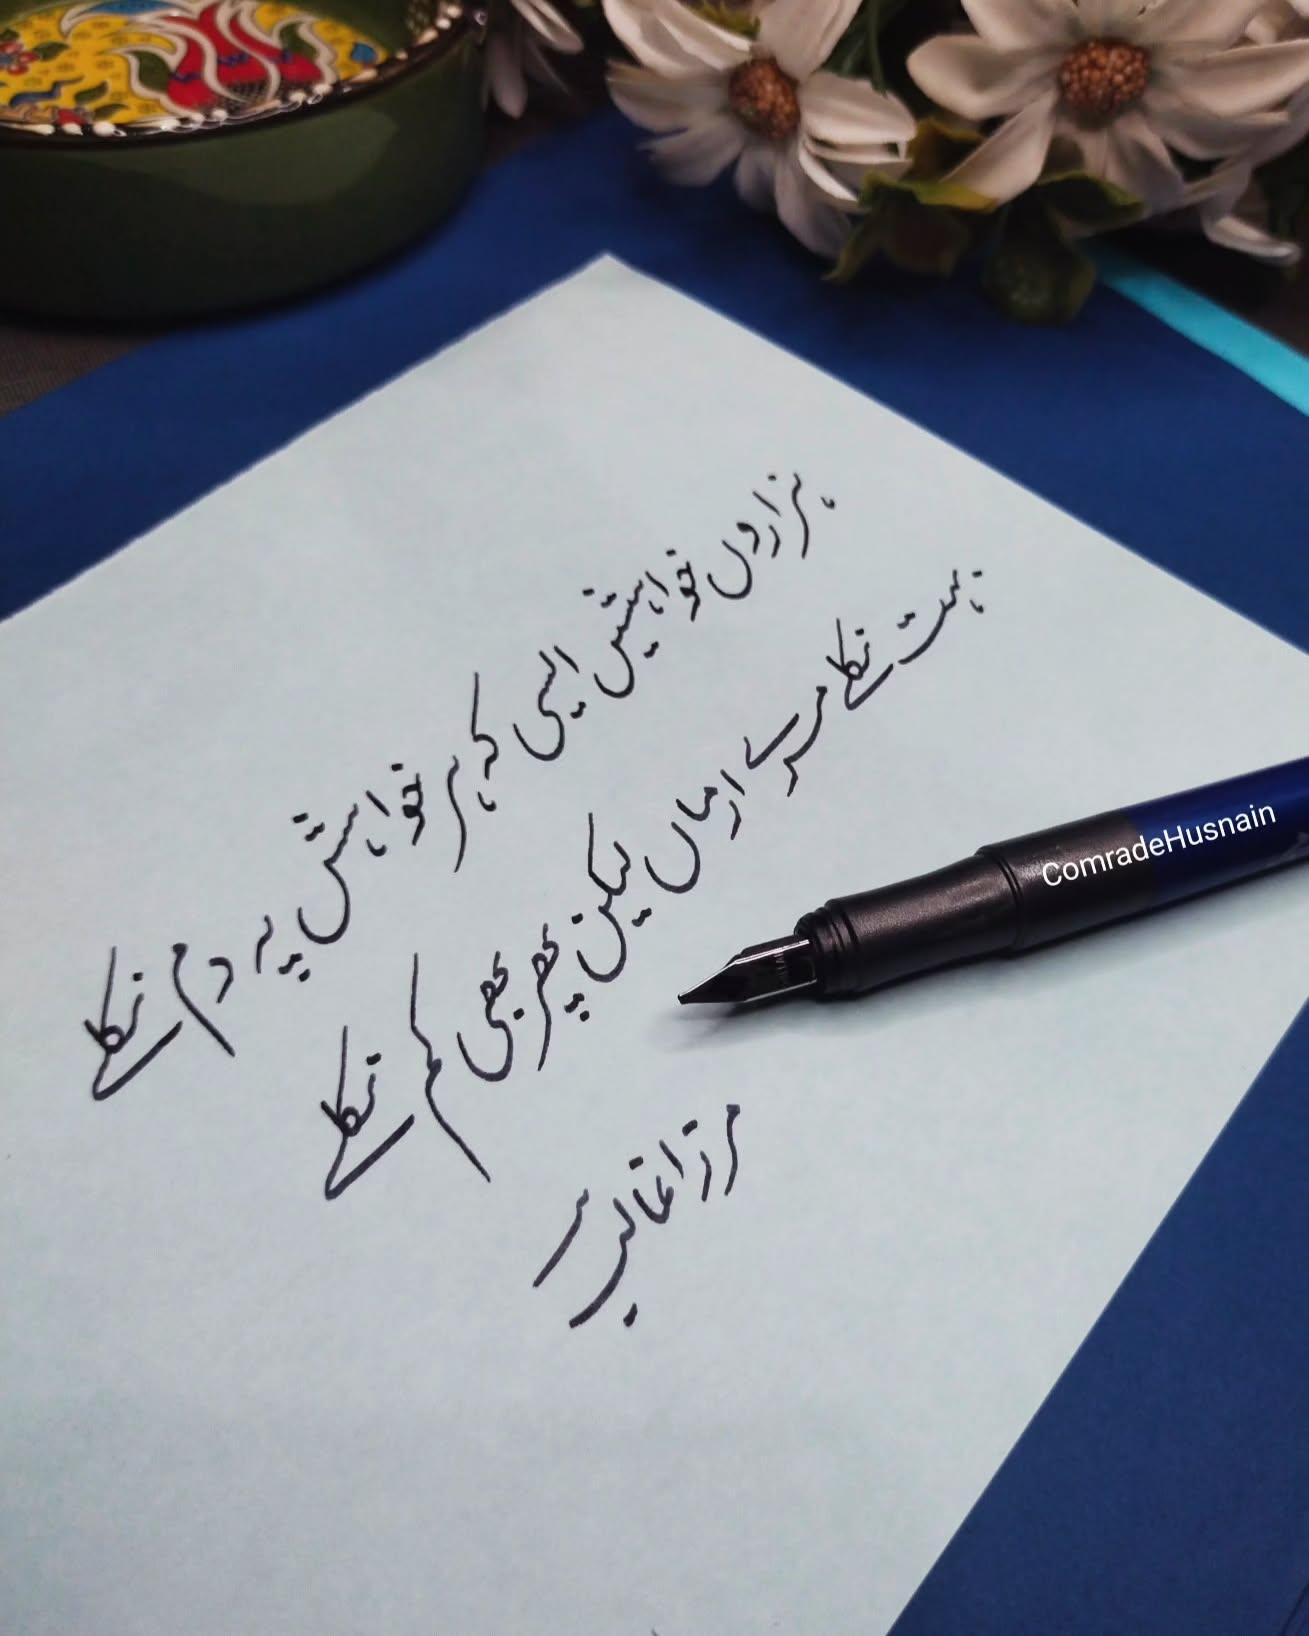 ہزاروں خواہشیں ایسی کہ ہر خواہش پہ دم نکلے
بہت نکلے مرے ارماں لیکن پھر بھی کم نکلے
مرزا غالب
ComradeHusnain